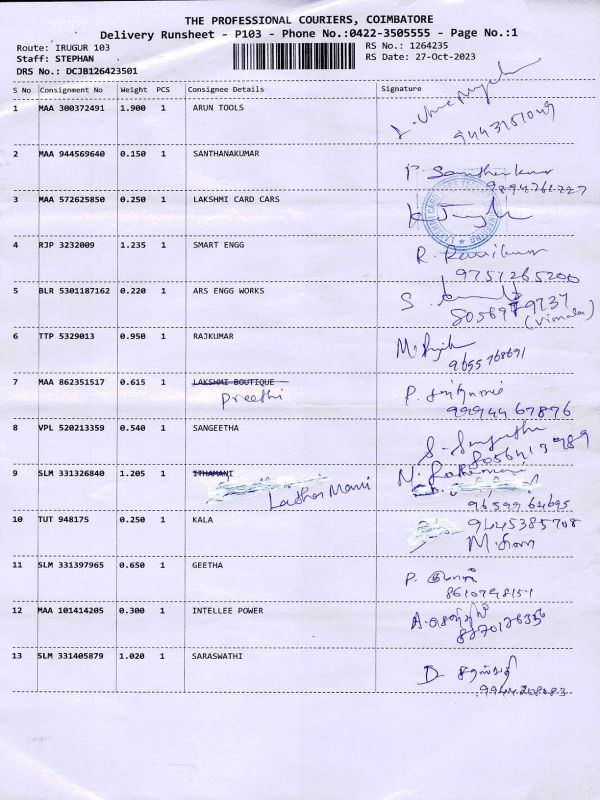 THE PROFESSIONAL COURIERS, COIMBATORE
Delivery Runsheet - P103 - Phone No.:0422-3505555 - Page No.:1
Route: IRUGUR 103
RS No.: 1264235
Staff: STEPHAN
RS Date: 27-Oct-2023
DRS No.: DCJB126423501
S No Consignment No Weight PCS Consignee Details Signature
1 MAA 300372491 1.900 1 ARUN TOOLS
2 MAA 944569640 0.150 1 SANTHANAKUMAR
3 MAA 572625850 0.250 1 LAKSHMI CARD CARS
4 RJP 3232009 1.235 1 SMART ENGG
9757265200
5 BLR 5301187162 0.220 1 ARS ENGG WORKS
(Vimala)
6 TTP 5329013 0.950 1 RAJKUMAR
7 MAA 862351517 0.615 1 LAKSHMI BOUTIQUE
Preethi
99944 67876
8 VPL 520213359 0.540 1 SANGEETHA
9 SLM 331326840 1.205 1 ITHAMANI
9659964695
10 TUT 948175 0.250 1 KALA 9645385708
11 SLM 331397965 0.650 1 GEETHA
8610798151
12 MAA 101414205 0.300 1 INTELLEE POWER
13 SLM 331405879 1.020 1 SARASWATHI D சரஸ்வதி
9944208083